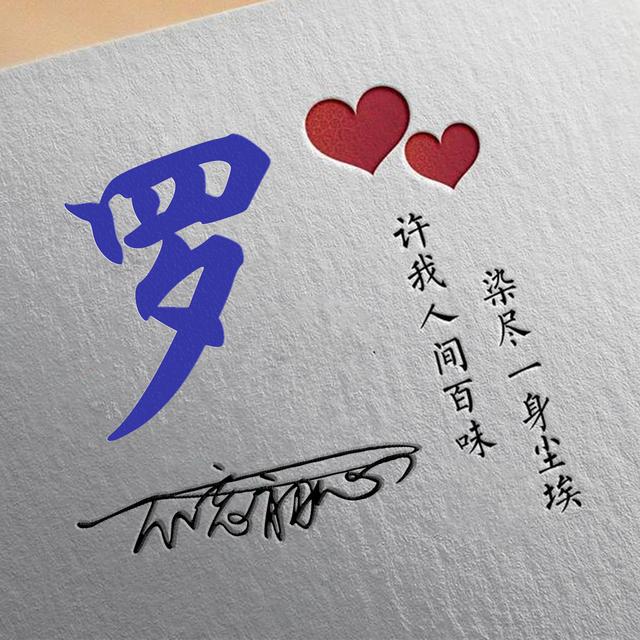 罗
染尽一身尘埃
许我人间百味